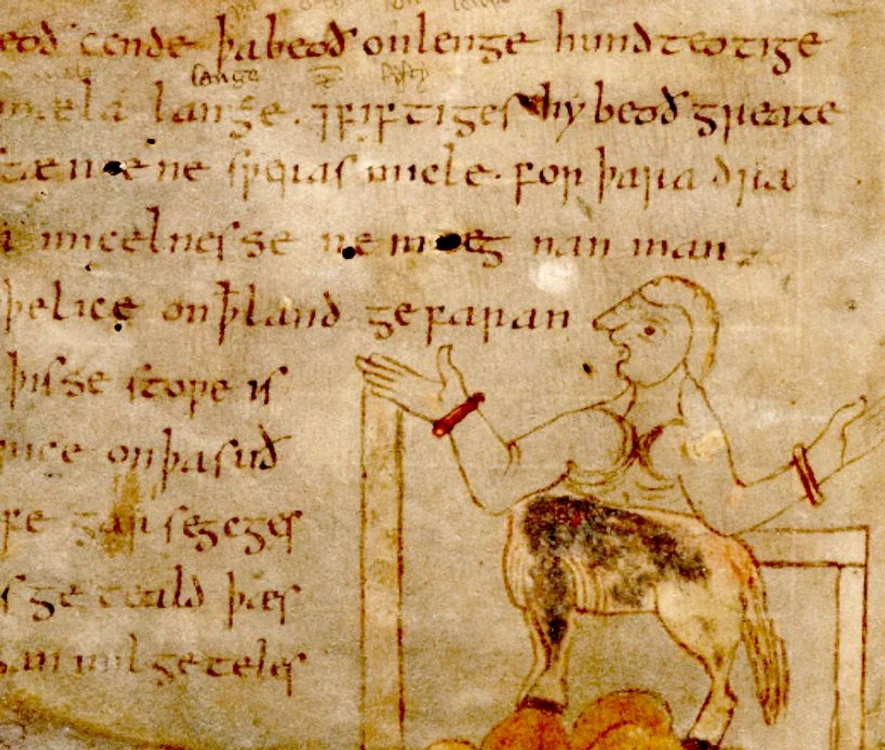 eoð cende þa beoð onlenge hundteotige
lange
mela lange. ⁊ fiftiges hy beoð greate
stænene sƿeras micle. for þara dra
micelnesse ne mæg nan man
þelice on ꝥ land gefaran
þisse stoƿe is
rice on þa suð
fe gar segcges
s geteald þæs
san milgeteles